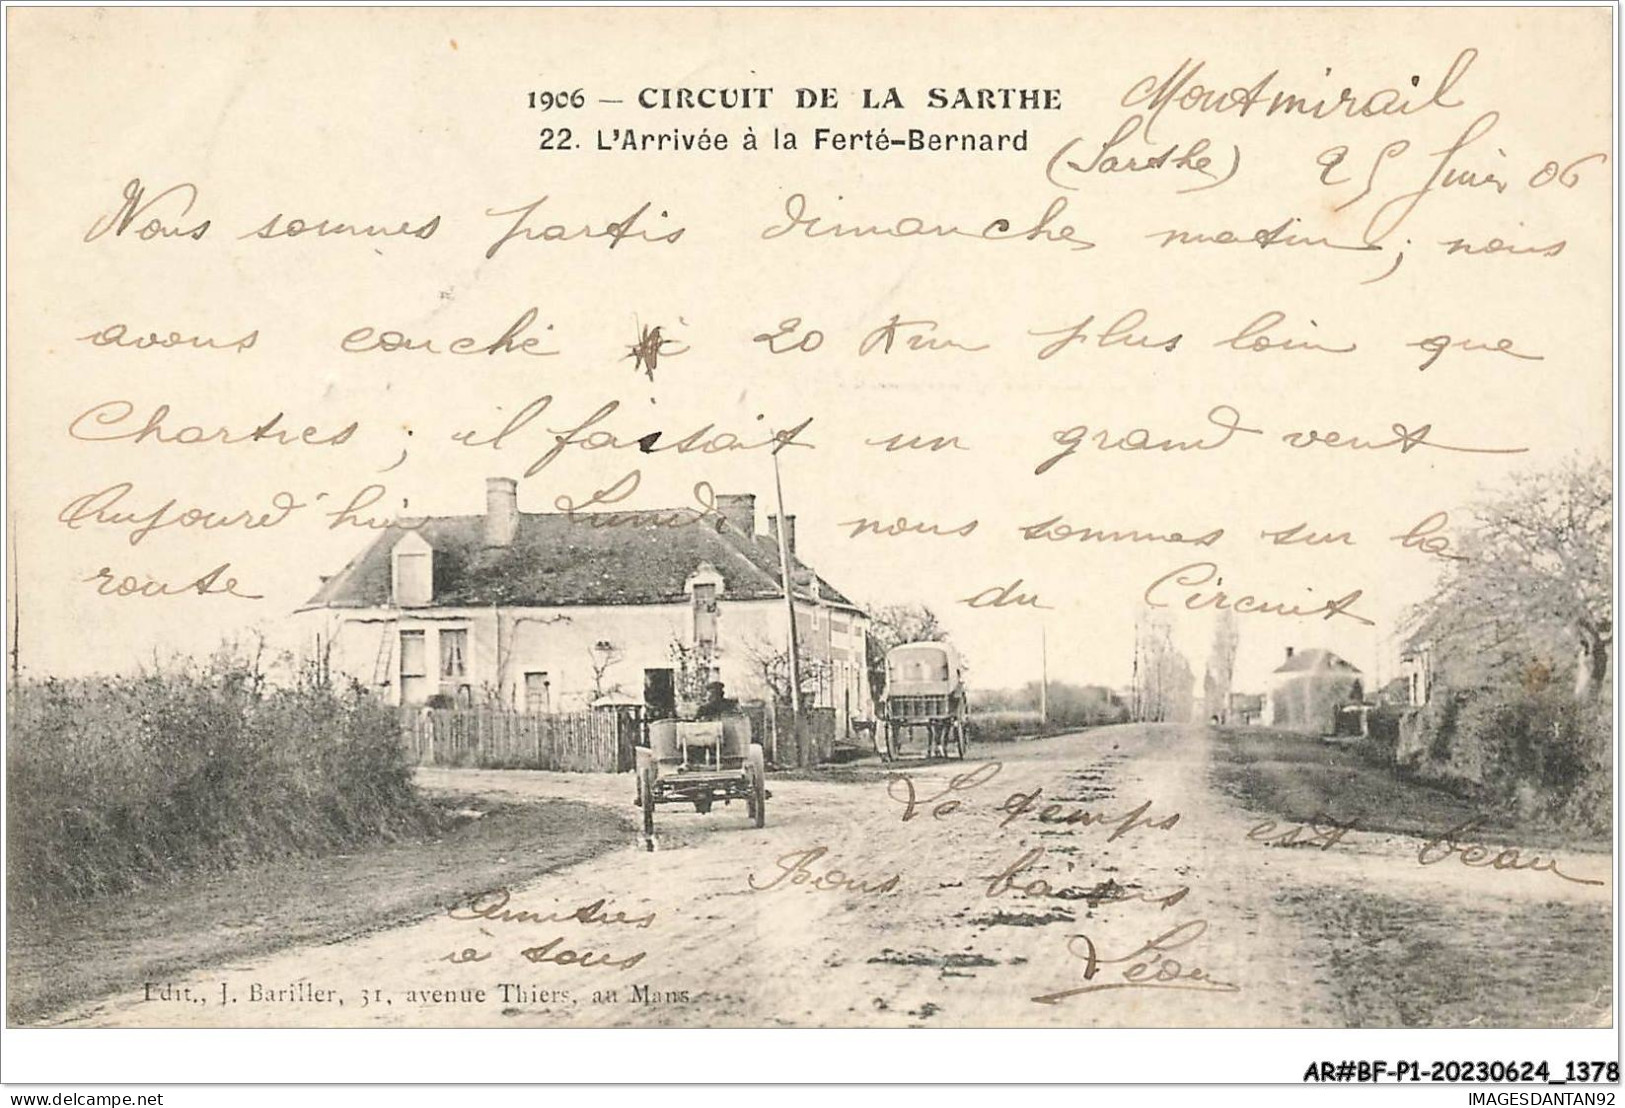 1906 — CIRCUIT DE LA SARTHE
22. L'Arrivée à la Ferté-Bernard
Montmirail
(Sarthe) 25 Juin 06
Nous sommes partis dimanche matin ; nous
avons couché à 20 Km plus loin que
Chartres ; il faisait un grand vent
Aujourd'hui Lundi nous sommes sur la
route du Circuit
Le temps est beau
Bons baisers
Amitiés
à tous
Léon
Edit., J. Bariller, 31, avenue Thiers, au Mans
AR#BF-P1-20230624_1378
delcampe.net
IMAGESDANTAN92